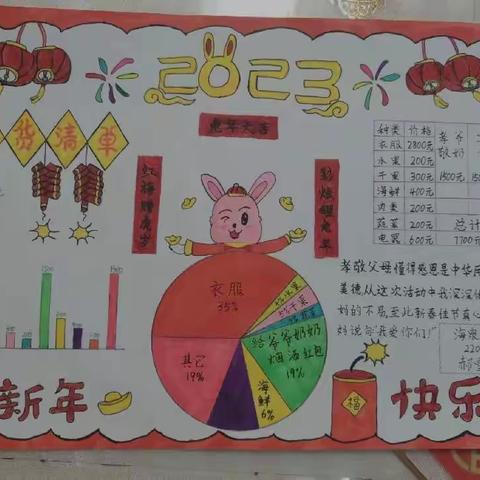 2023
货清单
兔年大吉
红梅赠虎岁
彩烛耀兔年
种类 价格
衣服 2800元
水果 200元
干果 300元
海鲜 400元
肉类 200元
蔬菜 200元
电器 600元
孝爷
敬奶
1500元
总计
7700元
衣服
35%
其它
19%
海鲜
6%
给爷爷奶奶
烟酒红包
19%
孝敬父母懂得感恩是中华
美德从这次活动中我深深
妈的不易至此新春佳节真心
妈说句"我爱你们!"
新年
快乐
福